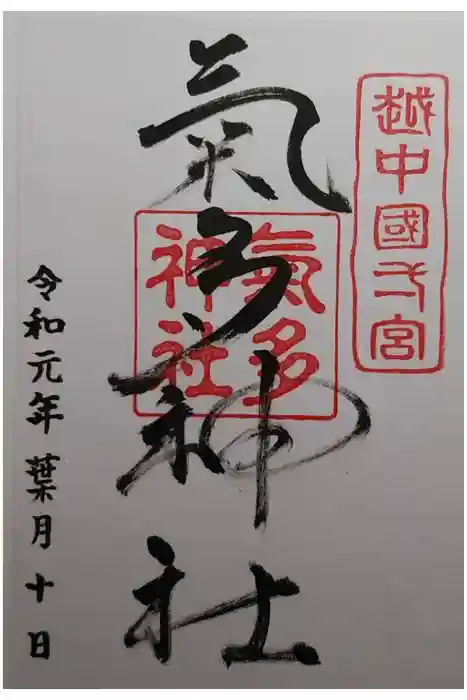 越中國弌宮
氣多神社
氣多
神社
令和元年葉月十日